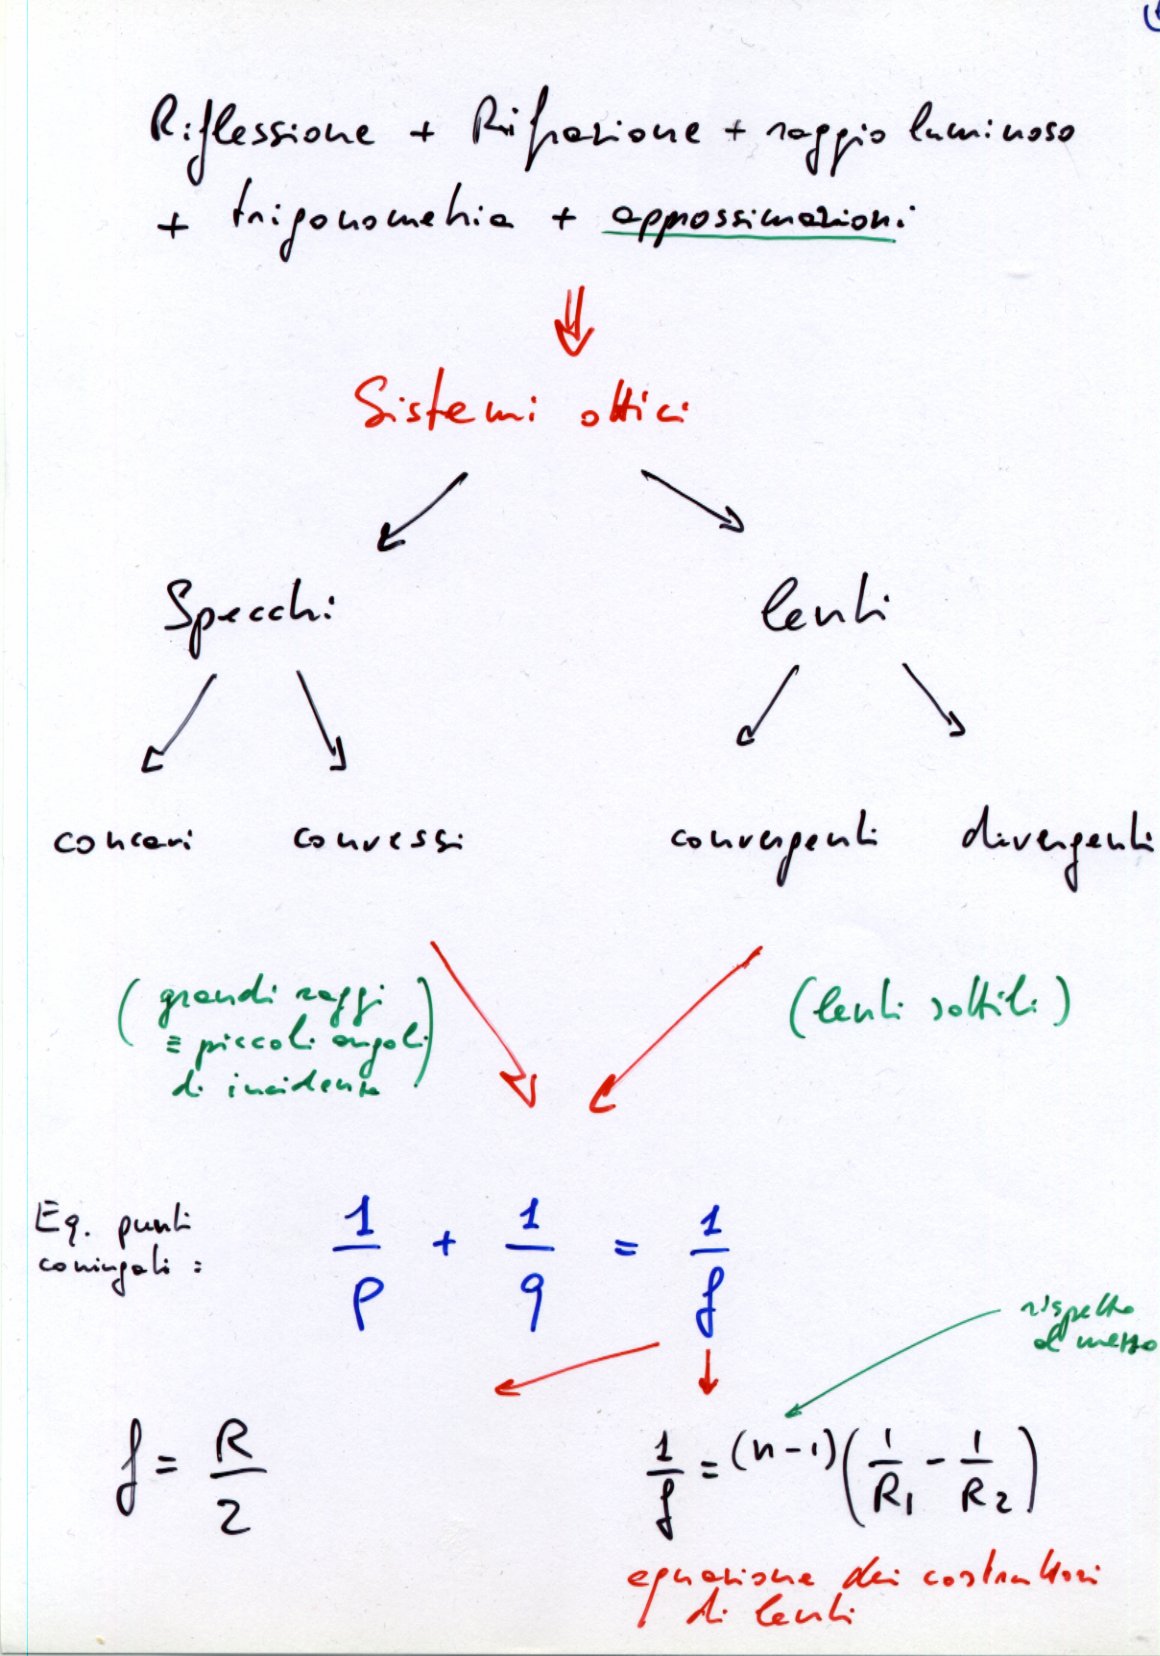 Riflessione + Rifrazione + raggio luminoso
+ trigonometria + approssimazioni
⇓
Sistemi ottici
Specchi lenti
concavi convessi convergenti divergenti
(grandi raggi (lenti sottili)
≡ piccoli angoli
di incidenza)
Eq. punti
coniugati :
1/p + 1/q = 1/f
rispetto
al mezzo
f = R/2 1/f = (n-1)(1/R₁ - 1/R₂)
equazione dei costruttori
di lenti